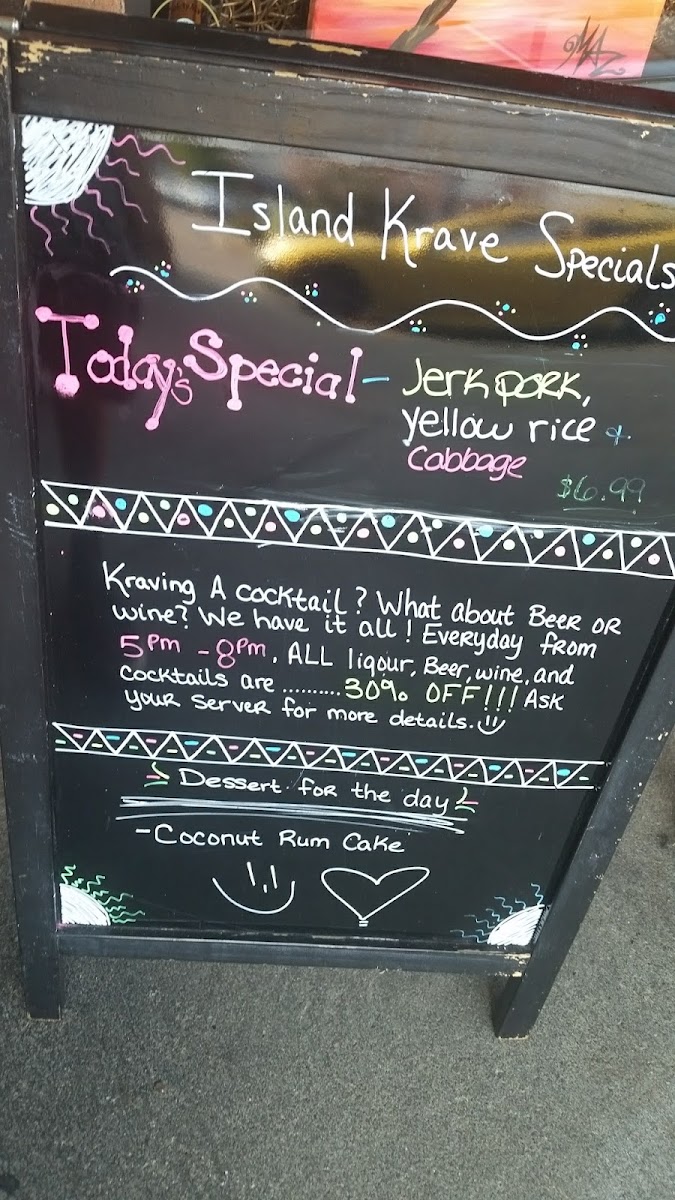 Island Krave Specials
Today's Special - Jerk pork,
yellow rice &
Cabbage
$6.99
Kraving A cocktail? What about Beer or
wine? We have it all! Everyday from
5pm - 8pm. ALL liqour, Beer, wine, and
cocktails are ..........30% OFF!!! Ask
your server for more details.
Dessert for the day
- Coconut Rum Cake